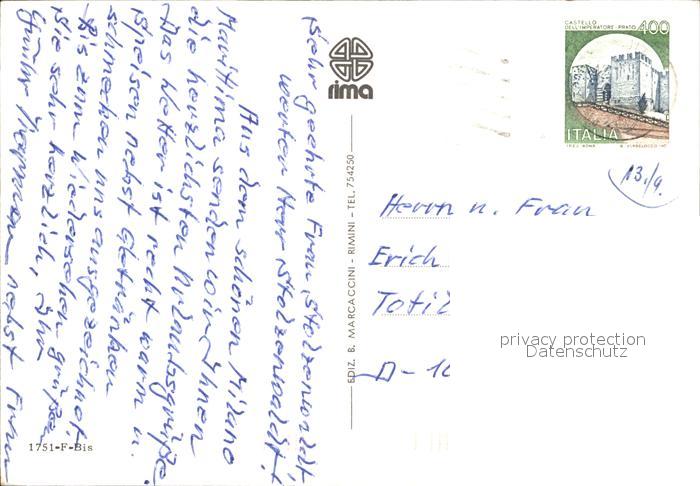 Sehr geehrte Frau Stolzenwaldt,
werter Herr Stolzenwaldt!
Aus dem schönen Milano
Marittima senden wir Ihnen
die herzlichsten Urlaubsgrüße.
Das Wetter ist recht warm u.
Speisen nebst Getränken
schmecken uns ausgezeichnet.
Bis zum Wiedersehen grüßen
Sie sehr herzlich, Ihr
Günter nebst Frau
1751-F-Bis
rima
EDIZ. B. MARCACCINI - RIMINI - TEL. 754250
CASTELLO
DELL'IMPERATORE - PRATO 400
ITALIA
13./9.
Herrn u. Frau
Erich
D-10
privacy protection
Datenschutz